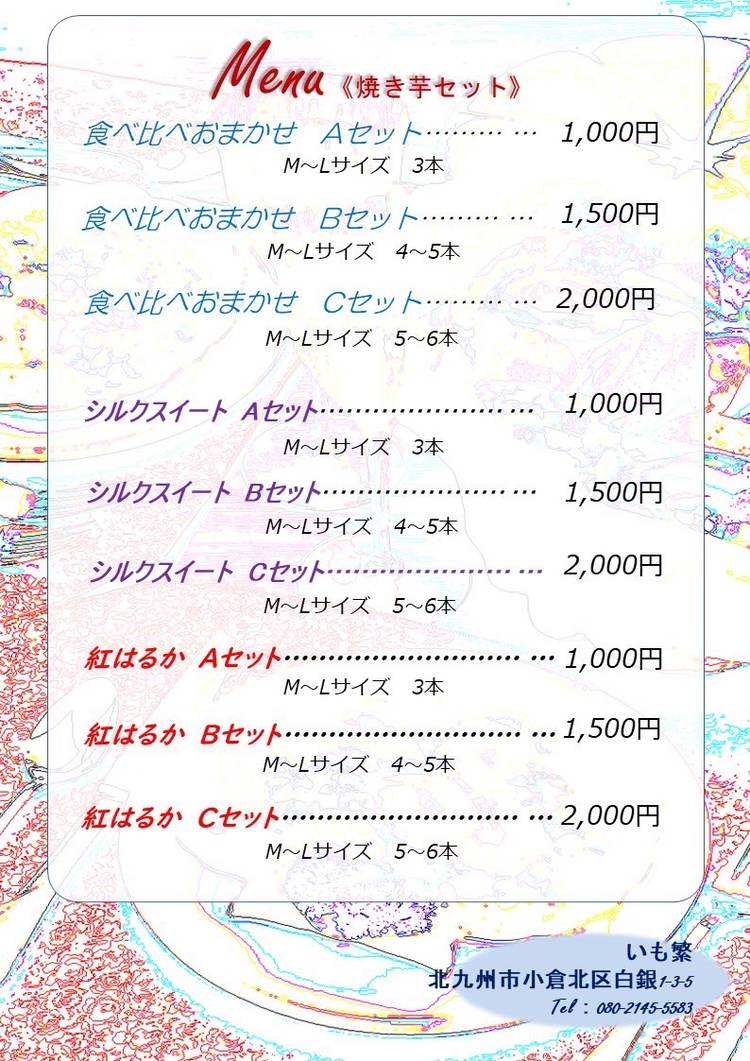 Menu《焼き芋セット》
食べ比べおまかせ Aセット……… … 1,000円
M～Lサイズ 3本
食べ比べおまかせ Bセット……… … 1,500円
M～Lサイズ 4～5本
食べ比べおまかせ Cセット……… … 2,000円
M～Lサイズ 5～6本
シルクスイート Aセット………………… … 1,000円
M～Lサイズ 3本
シルクスイート Bセット………………… … 1,500円
M～Lサイズ 4～5本
シルクスイート Cセット………………… … 2,000円
M～Lサイズ 5～6本
紅はるか Aセット……………………… … 1,000円
M～Lサイズ 3本
紅はるか Bセット……………………… … 1,500円
M～Lサイズ 4～5本
紅はるか Cセット……………………… … 2,000円
M～Lサイズ 5～6本
いも繁
北九州市小倉北区白銀1-3-5
Tel：080-2145-5583